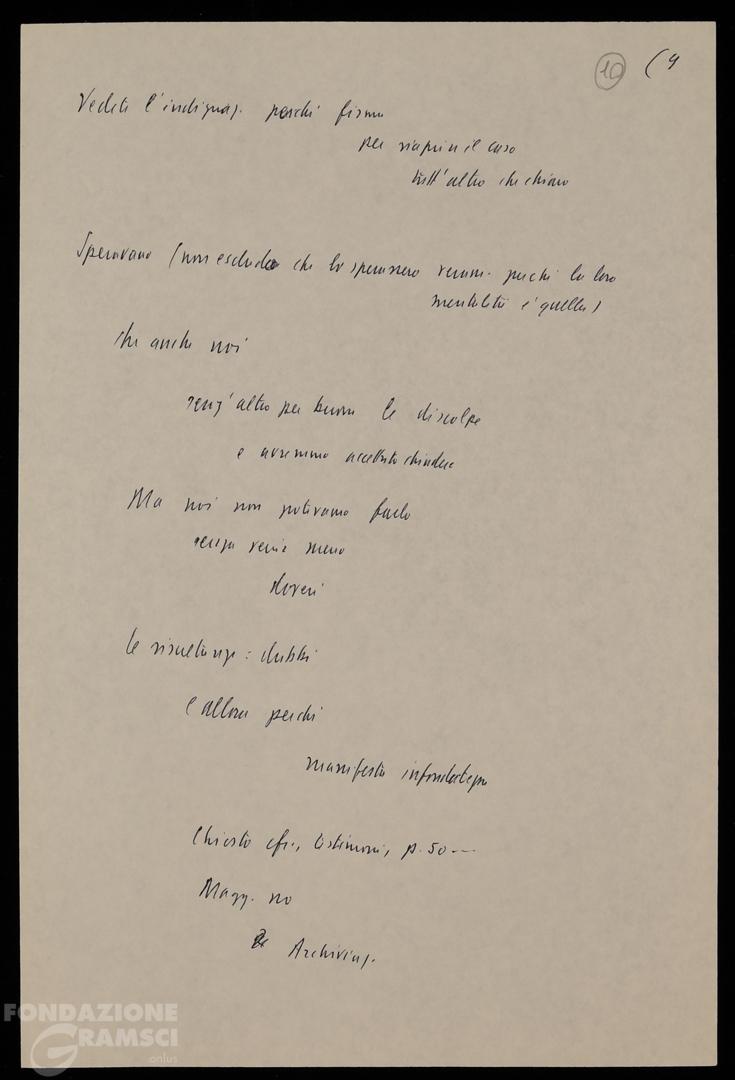 10 (9
Vedete l'indignaz. perché firme
per riaprire il caso
tutt'altro che chiaro
Speravano (non escludo che lo sperassero veram. perché la loro
mentalità è quella)
che anche noi
senz'altro per buone le discolpe
e avremmo accettato chiudere
Ma noi non potevamo farlo
senza venir meno
doveri
le risultanze: dubbi
e allora perché
manifesta infondatezza
Chiesto testimoni, p. 50 ---
Magg. no
Archiviaz.
FONDAZIONE
GRAMSCI
onlus